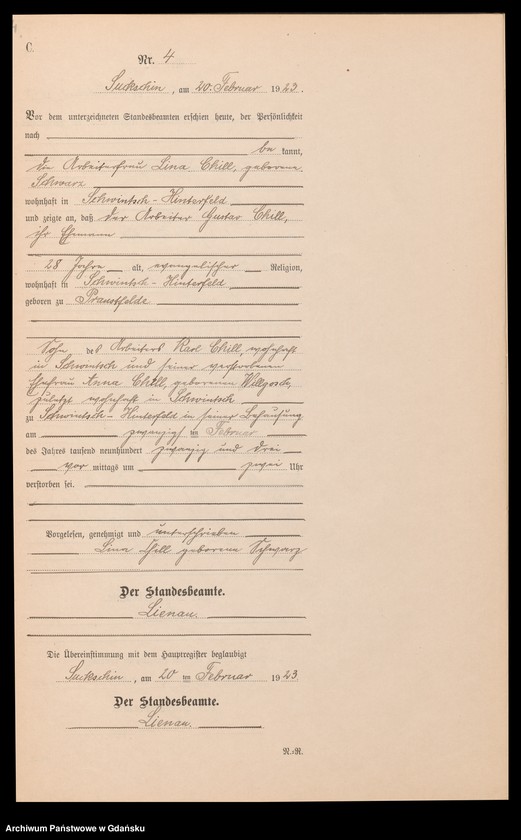 C.
Nr. 4
Suckschin, am 20. Februar 1923.
Vor dem unterzeichneten Standesbeamten erschien heute, der Persönlichkeit
nach
be kannt,
die Arbeiterfrau Lina Chill, geborene
Schwarz
wohnhaft in Schwintsch-Hinterfeld
und zeigte an, daß der Arbeiter Gustav Chill,
ihr Ehemann
28 Jahre alt, evangelischer Religion,
wohnhaft in Schwintsch-Hinterfeld
geboren zu
Sohn des Arbeiters Karl Chill, wohnhaft
in Schwintsch und seiner verstorbenen
Ehefrau Anna Chill, geborenen
zuletzt wohnhaft in Schwintsch
zu Schwintsch-Hinterfeld in seiner Behausung
am zwanzigsten Februar
des Jahres tausend neunhundert zwanzig und drei
vor mittags um zwei Uhr
verstorben sei.
Vorgelesen, genehmigt und unterschrieben
Lina Chill geborene Schwarz
Der Standesbeamte.
Lienau.
Die Übereinstimmung mit dem Hauptregister beglaubigt
Suckschin, am 20 ten Februar 1923
Der Standesbeamte.
Lienau.
N.-R.
Archiwum Państwowe w Gdańsku